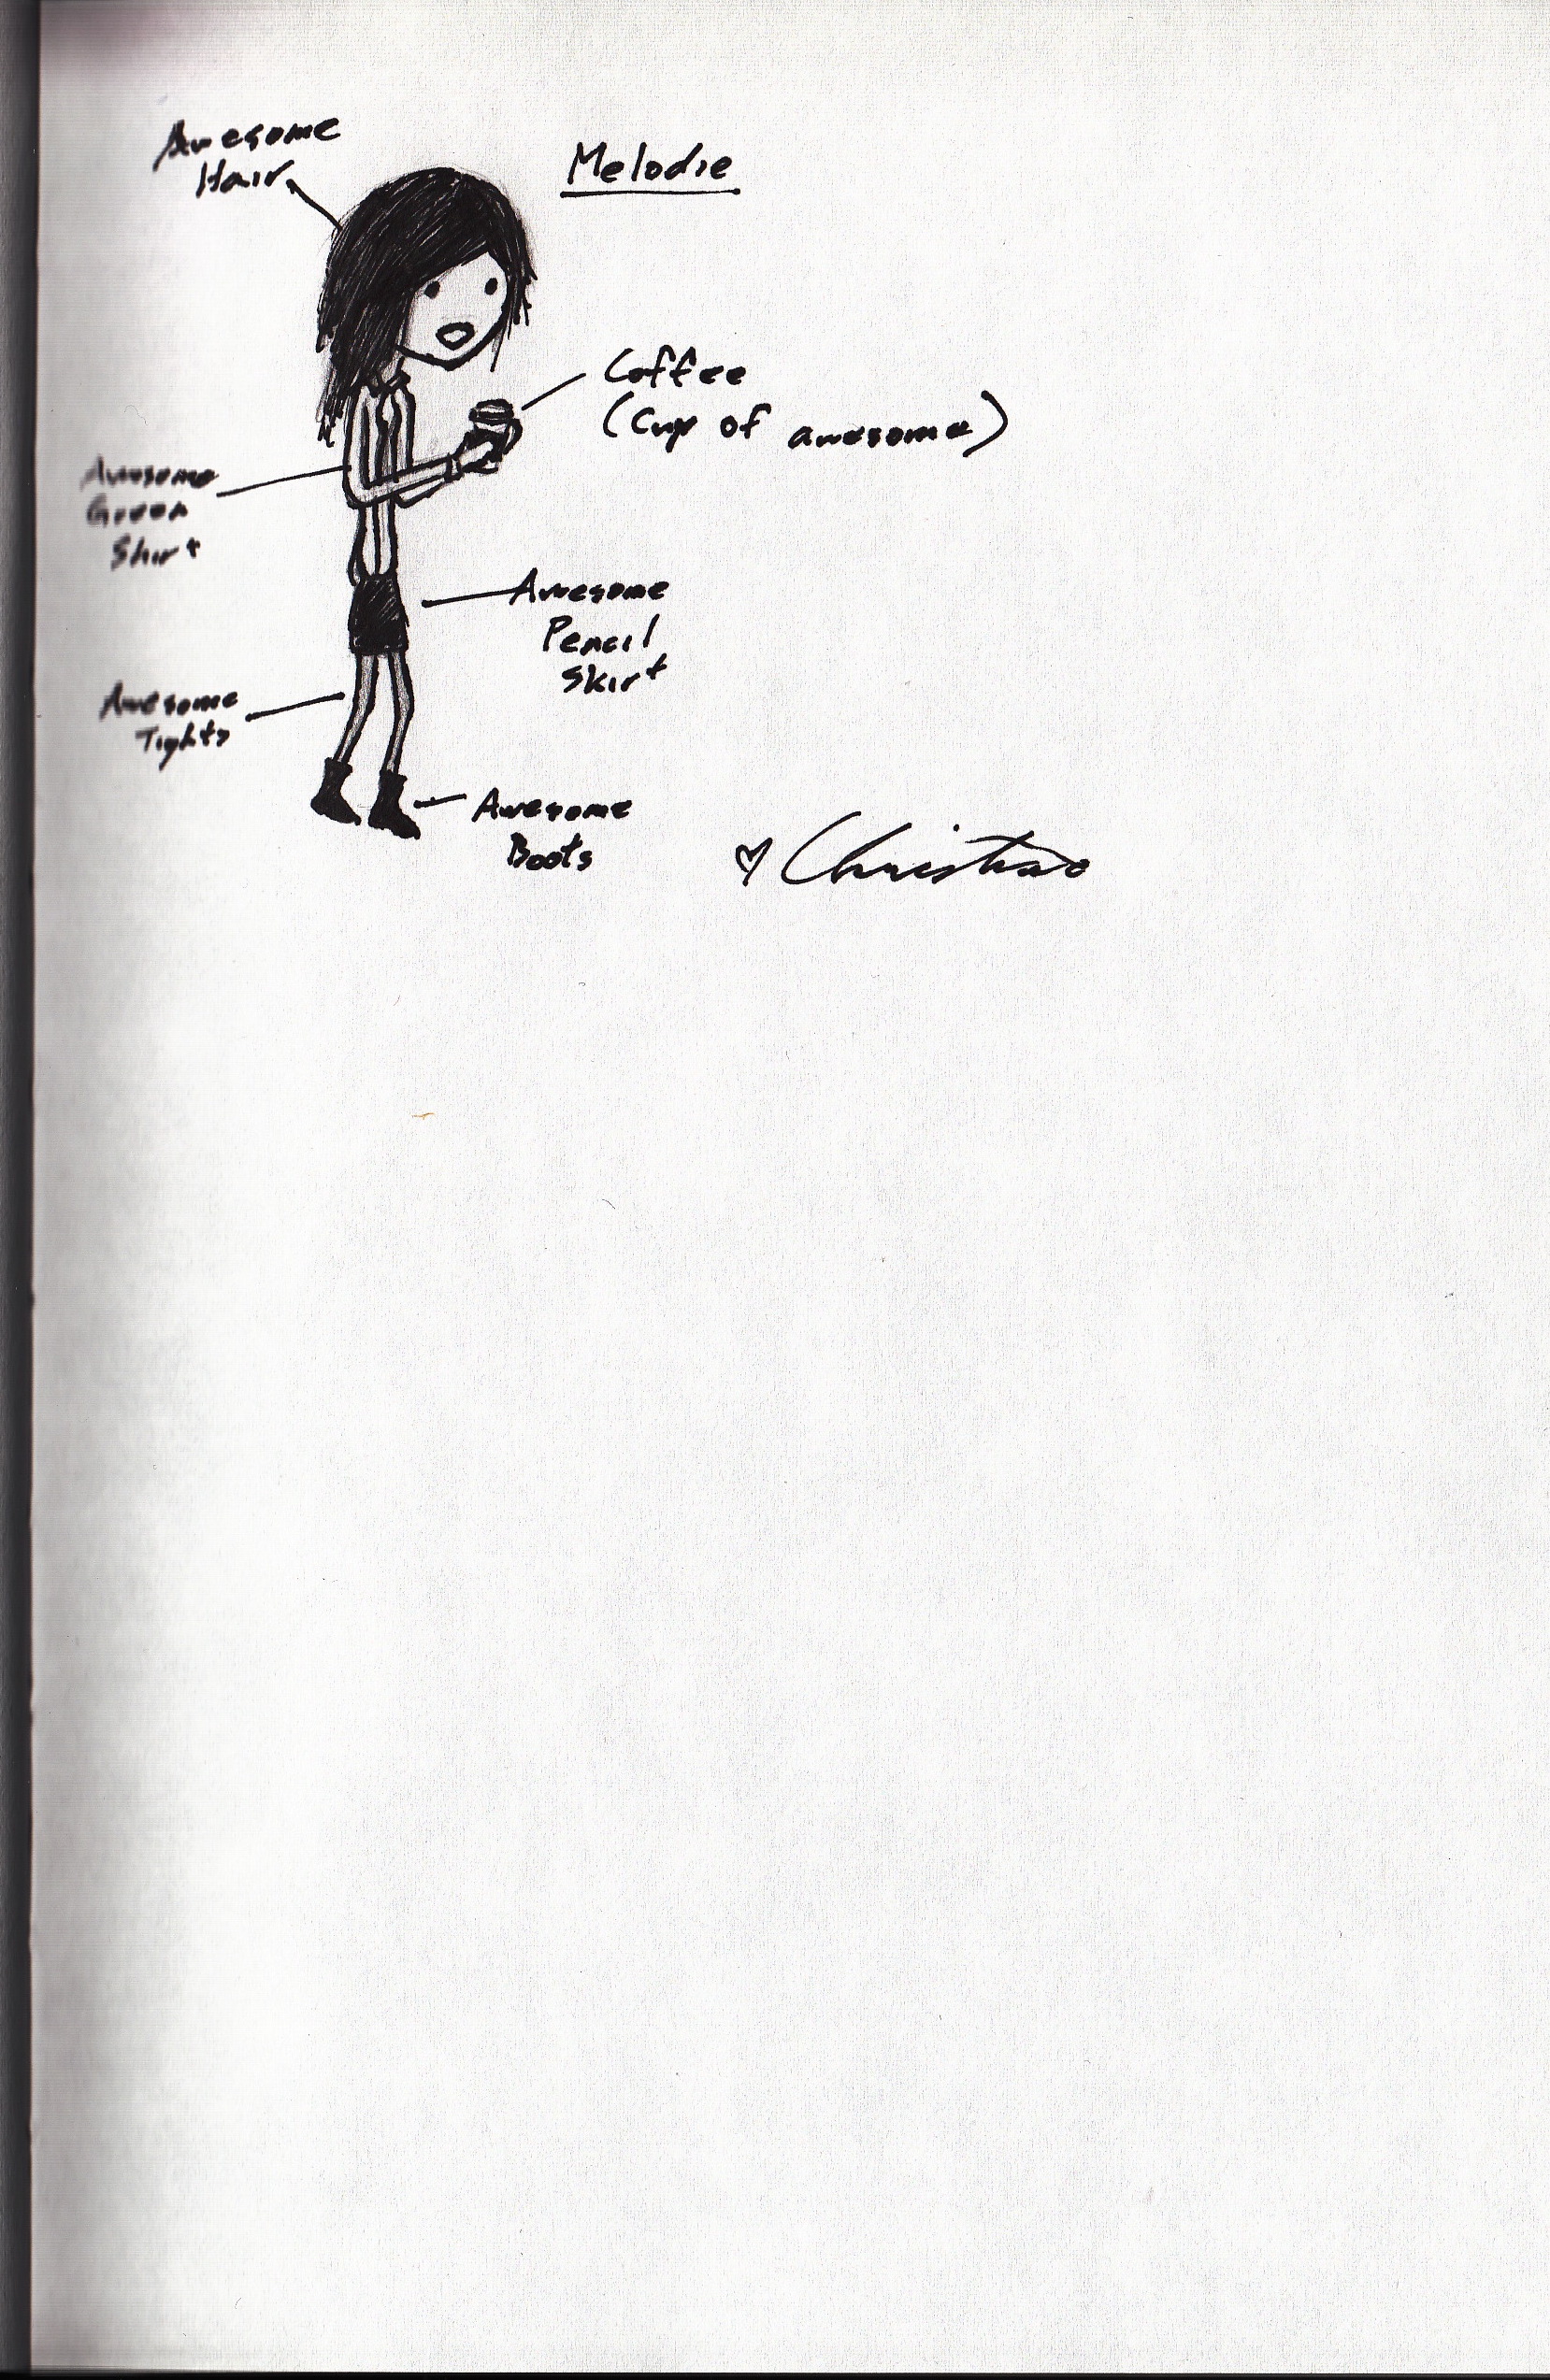 Awesome
Hair
Melodie
Coffee
(Cup of awesome)
Awesome
Green
Shirt
Awesome
Pencil
Skirt
Awesome
Tights
Awesome
Boots
♡